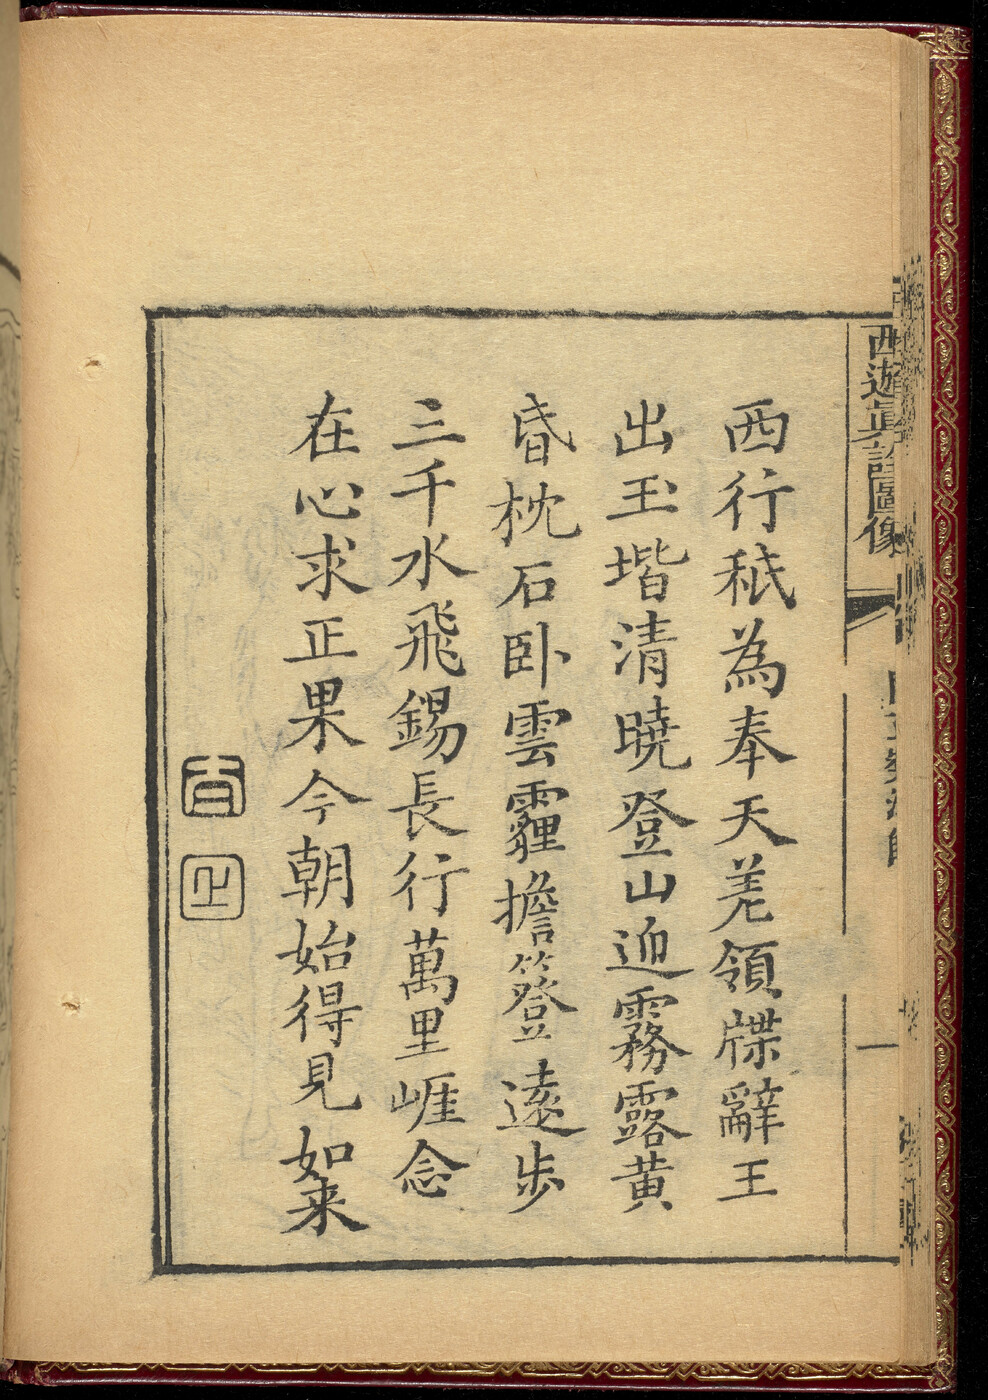 西遊眞詮圖像
西行秪為奉天差領牒辭王
出玉堦清曉登山迎霧露黄
昏枕石卧雲霾擔簦逺步
三千水飛錫長行萬里崕念
在心求正果今朝始得見如来